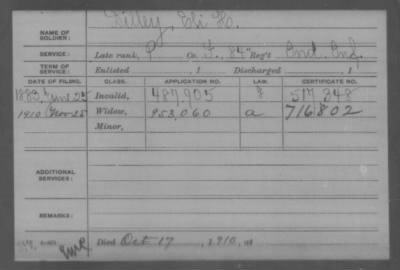 NAME OF SOLDIER: Dilley, Eli
SERVICE: Late rank, P Co. F, 84" Reg't Ind. Inf.
TERM OF SERVICE: Enlisted 1 Discharged , 1
DATE OF FILING. CLASS. APPLICATION NO. LAW. CERTIFICATE NO.
1883 June 25 Invalid, 487,905 517,348
1910 Nov 25 Widow, 953,060 a 716,802
Minor,
ADDITIONAL SERVICES:
REMARKS:
Died Oct 17, 1910, at